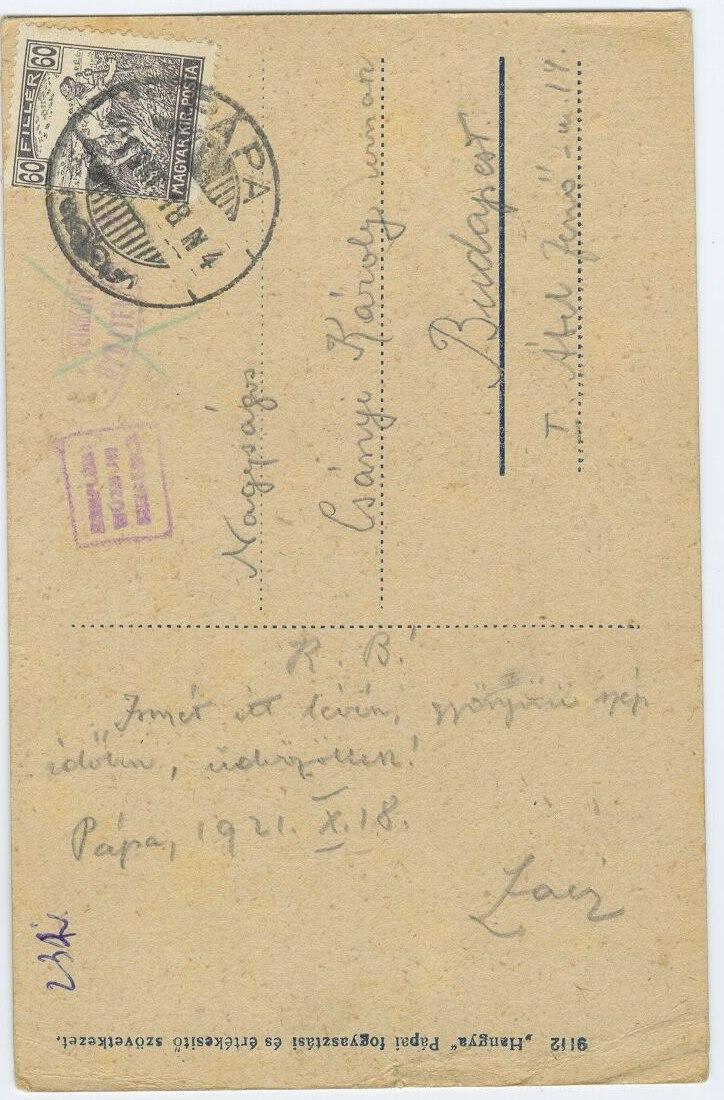 60 FILLÉR 60
MAGYAR KIR. POSTA
PÁPA
18 N 4
Nagyságos
Csányi Károly úrnak
Budapest.
I. Átel Jenő-u. 19.
K. B!
Ismét itt lévén, gyönyörű szép
időben, üdvözöllek!
Pápa, 1921. X. 18.
9112 „Hangya" Pápai fogyasztási és értékesitő szövetkezet.